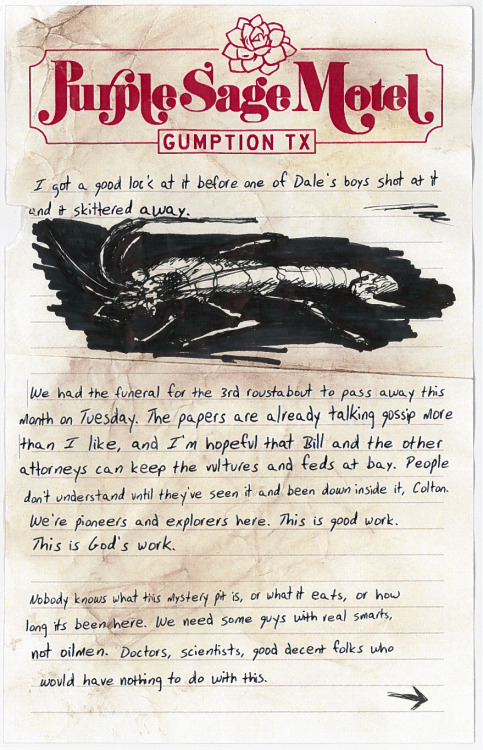 Purple Sage Motel
GUMPTION TX
I got a good look at it before one of Dale's boys shot at it
and it skittered away.
We had the funeral for the 3rd roustabout to pass away this
month on Tuesday. The papers are already talking gossip more
than I like, and I'm hopeful that Bill and the other
attorneys can keep the vultures and feds at bay. People
don't understand until they've seen it and been down inside it, Colton.
We're pioneers and explorers here. This is good work.
This is God's work.
Nobody knows what this mystery pit is, or what it eats, or how
long its been here. We need some guys with real smarts,
not oilmen. Doctors, scientists, good decent folks who
would have nothing to do with this.